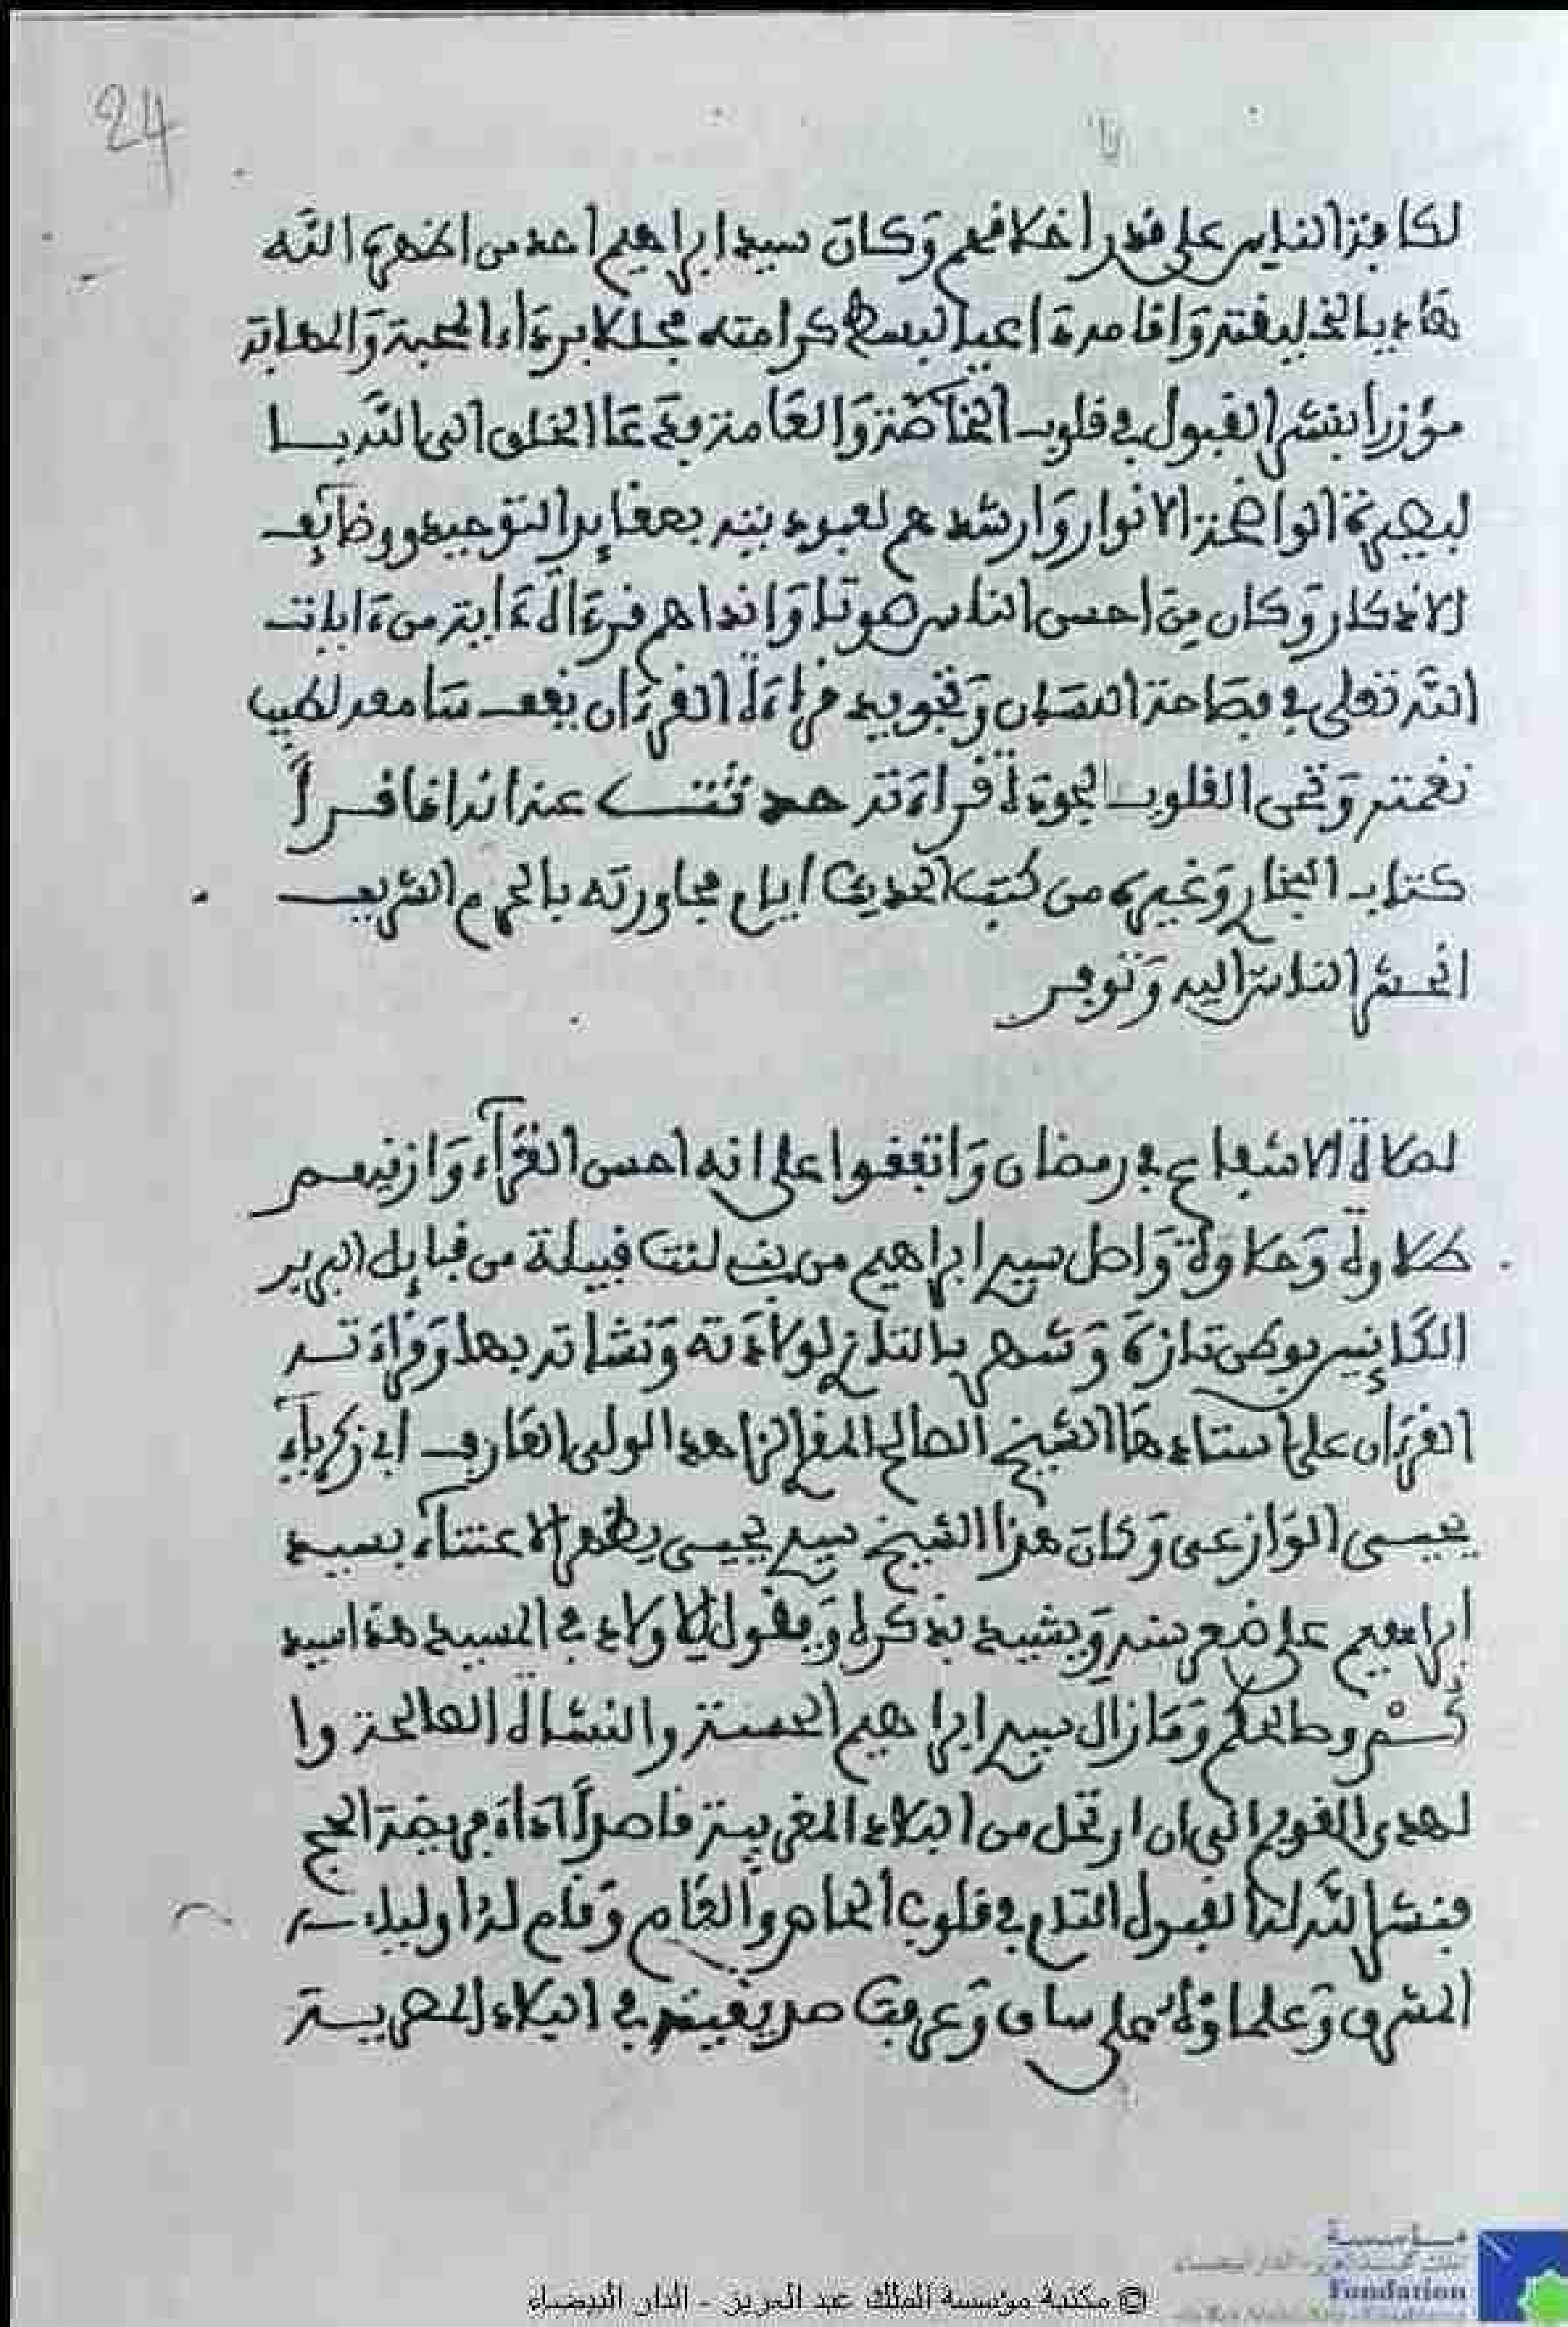 24
لكافة الناس على قدر أخلاقهم وَكانَ سيد ابراهيم احد من اظهره الله
هَاديا لخليقته وَاقامه داعيا لبسط كرامته مجللا برداء المحبة وَالمهابة
مؤزرا بنشر القبول في قلوب الخاصّة وَالعَامة فدَعَا الخلق الى الله با
لبصيرة الواضحة الانوار وَارشدهم لعبوديته بعقايد التوحيد ووظايف
الاذكار وَكان مِن احسن الناس صوتا وَانداهم قرءَاته ءَاية من ءَايات
الله تعلى في فِصَاحة اللسان وَتجويد قراءة القرءَان يقف سَامعه لطيب
نغمته وَتحى القلوب لجودة قراءَته حدثت عنه انه اذا قرأ
كتاب البخاري وَغيره من كتب الحديث ايام مجاورته بالحرم الشريف
انحشر الناس اليه وَتوفر
لصلاة الاشفاع في رمضان وَاتفقوا على انه احسن القرّآء وَازينهم
طلاوة وَحلاوة وَاصل سيدي ابراهيم من بني لنت قبيلة من قبايل البربر
الكَاينين بوطن تازة وَشهر بالتازي لولادته وَنشاته بها وَقراءته
القرءَان على استاذهَا الشيخ الصالح المقرئ الزاهد الولي العَارف ابي زكرياء
يحيى الوَازعى وَكانَ هذا الشيخ سيدي يحيى يظهر الاعتنآء بسيد
ابراهيم على صغر سنه وَيشيد بذكره وَيقول للاولاد في المسيد هذا سيد
كُمْ وصالحكم وَمَا زال سيدي ابراهيم الحسنة والنشاة الصالحة وا
لهدى القويم الى ان ارتحل من البلاد المغربية قاصدًا اداء فريضة الحج
فنشر الله له القبول التام في قلوب الخاص وَالعَام وَقام له اولياء
المشرق وَعلماؤه على ساق وَعرفت صديقيته في البلاد المصرية
© مكتبة مؤسسة الملك عبد العزيز - الدار البيضاء
مؤسسة
Fondation